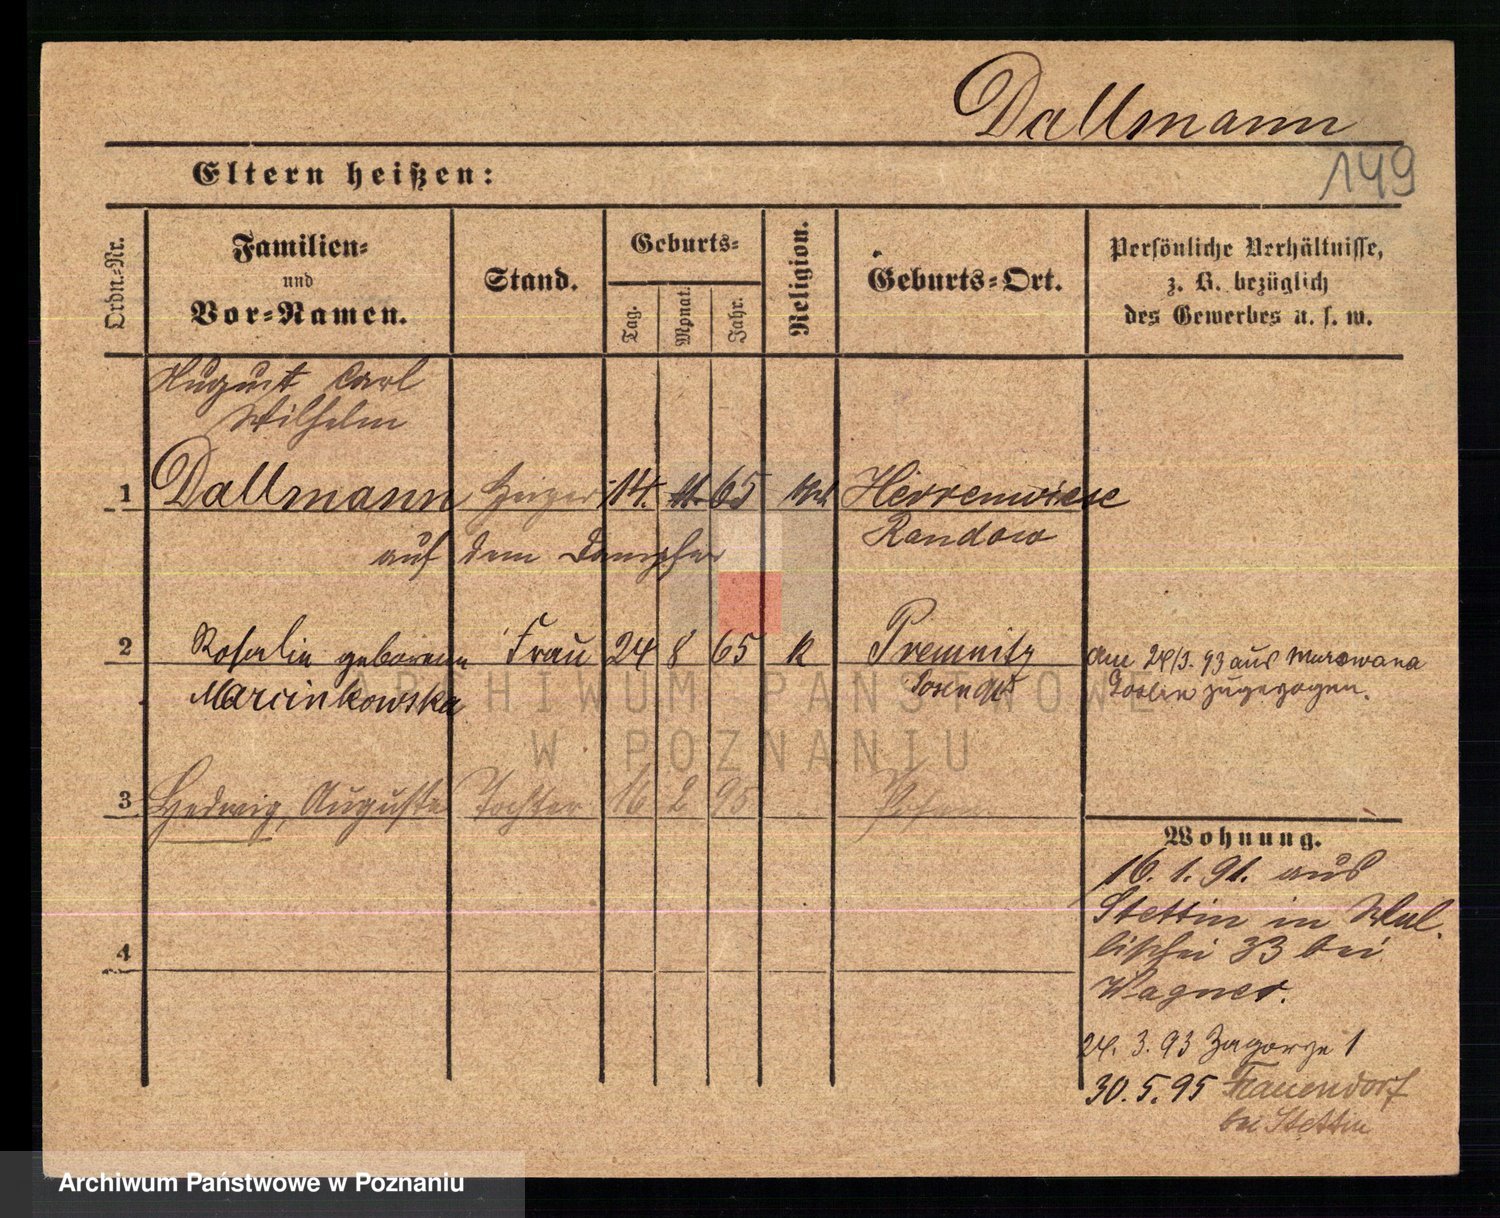 Dallmann
149
Eltern heißen:
Ordn.-Nr.
Familien- und Vor-Namen.
Stand.
Geburts-
Tag.
Monat.
Jahr.
Religion.
Geburts-Ort.
Persönliche Verhältnisse,
z. B. bezüglich
des Gewerbes u. s. w.
August Carl
Wilhelm
1 Dallmann Heizer 14. 11. 65 Herrenwiese
auf dem Dampfer Randow
2 Rosalie geborene Frau 24 8 65 k Premnitz am 24/3. 93 aus Murowana
Marcinkowska Goslin zugezogen.
3 Hedwig, Auguste Tochter 16 2 95 Posen
4
Wohnung.
16. 1. 91. aus
Stettin in Wal-
lischei 33 bei
Wagner.
24. 3. 93 Zagorze 1
30. 5. 95 Frauendorf
bei Stettin
ARCHIWUM PAŃSTWOWE
W POZNANIU
Archiwum Państwowe w Poznaniu